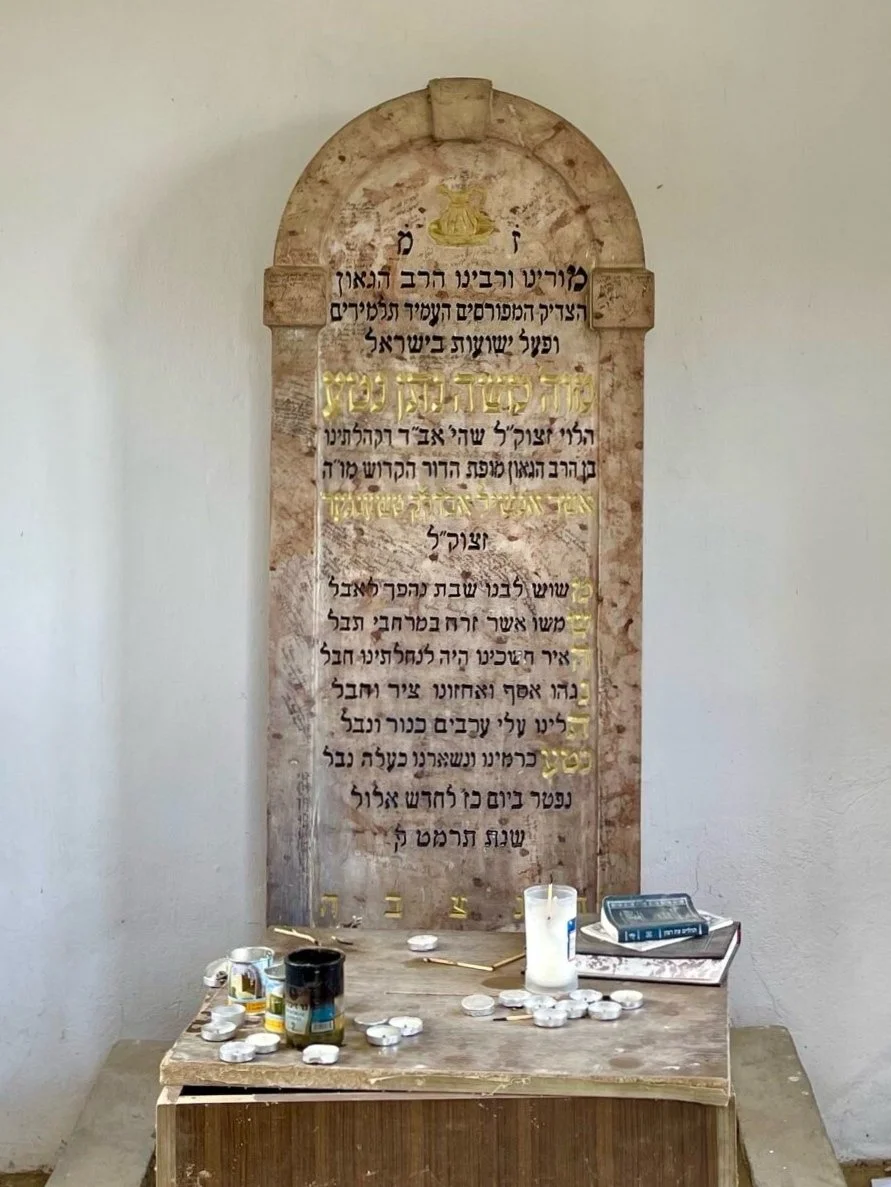 ז מ
מורינו ורבינו הרב הגאון
הצדיק המפורסים העמיד תלמידים
ופעל ישועות בישראל
מו״ה משה נתן נטע
הלוי זצוק״ל שהי׳ אב״ד דקהלתינו
בן הרב הגאון מופת הדור הקדוש מו״ה
אשר אנשיל
זצוק״ל
משוש לבנו שבת נהפך לאבל
שמשו אשר זרח במרחבי תבל
האיר חשכינו היה לנחלתינו חבל
נגהו אסף ואחזונו ציר וחבל
תלינו עלי ערבים כנור ונבל
נטע כרמינו ונשארנו כעלה נבל
נפטר ביום כז לחדש אלול
שנת תרמט ק
ת נ צ ב ה